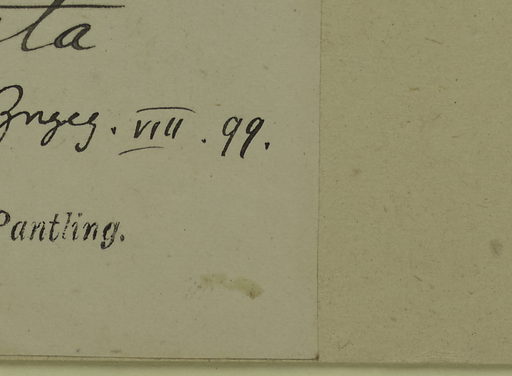 ta
VIII. 99.
Pantling.